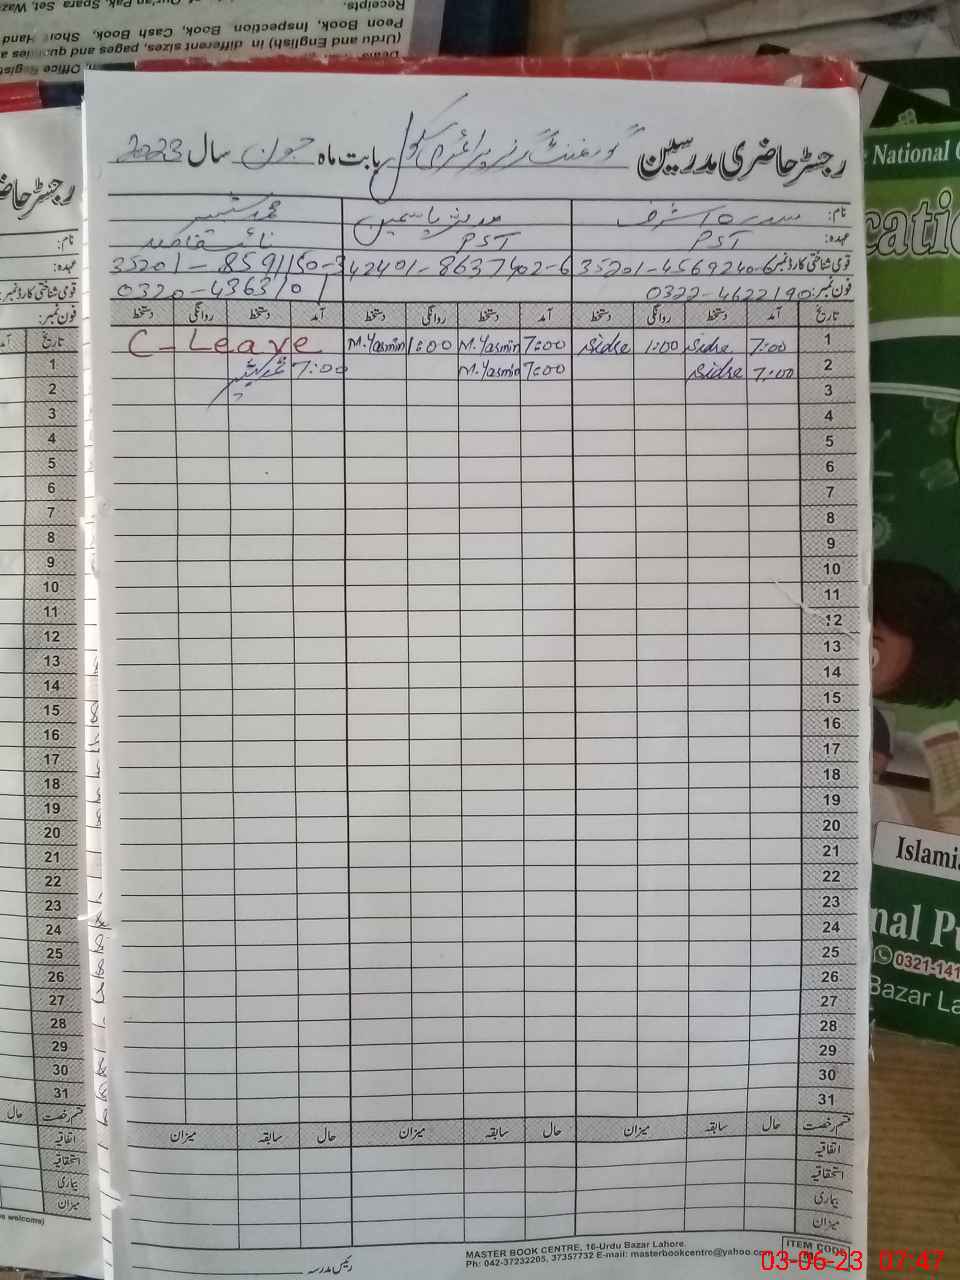 Receipts.
Peon Book, Inspection Book, Cash Book, Short Hand
(Urdu and English) in different sizes, pages and
National
رجسٹر حاضری مدرسین گورنمنٹ گرلز پرائمری سکول بابت ماہ جون سال 2023
نام: سدرہ اشرف مدیثر یاسمین محمد شبیر
عہدہ: PST PST نائب قاصد
قومی شناختی کارڈ نمبر: 35201-4569240-6 42401-8637402-6 35201-8591150-3
فون نمبر: 0322-4622190 0320-4363101
تاریخ آمد دستخط روانگی دستخط آمد دستخط روانگی دستخط آمد دستخط روانگی دستخط
1 7:00 Sidra 1:00 Sidra 7:00 M.Yasmin 1:00 M.Yasmin C-Leave
2 7:00 Sidra 7:00 M.Yasmin 7:00
3
4
5
6
7
8
9
10
11
12
13
14
15
16
17
18
19
20
21
22
23
24
25
26
27
28
29
30
31
قسم رخصت حال سابقہ میزان حال سابقہ میزان حال سابقہ میزان
اتفاقیہ
استحقاقیہ
بیماری
میزان
رئیس مدرسہ
MASTER BOOK CENTRE, 16-Urdu Bazar Lahore.
Ph: 042-37232205, 37357732 E-mail: masterbookcentre@yahoo.co
ITEM CODE
رجسٹر حاضر
نام:
عہدہ:
قومی شناختی کارڈ نمبر:
فون نمبر:
تاریخ
1
2
3
4
5
6
7
8
9
10
11
12
13
14
15
16
17
18
19
20
21
22
23
24
25
26
27
28
29
30
31
قسم رخصت حال
اتفاقیہ
استحقاقیہ
بیماری
میزان
welcome)
Islami
0321-141
Bazar La
03-06-23 07:47